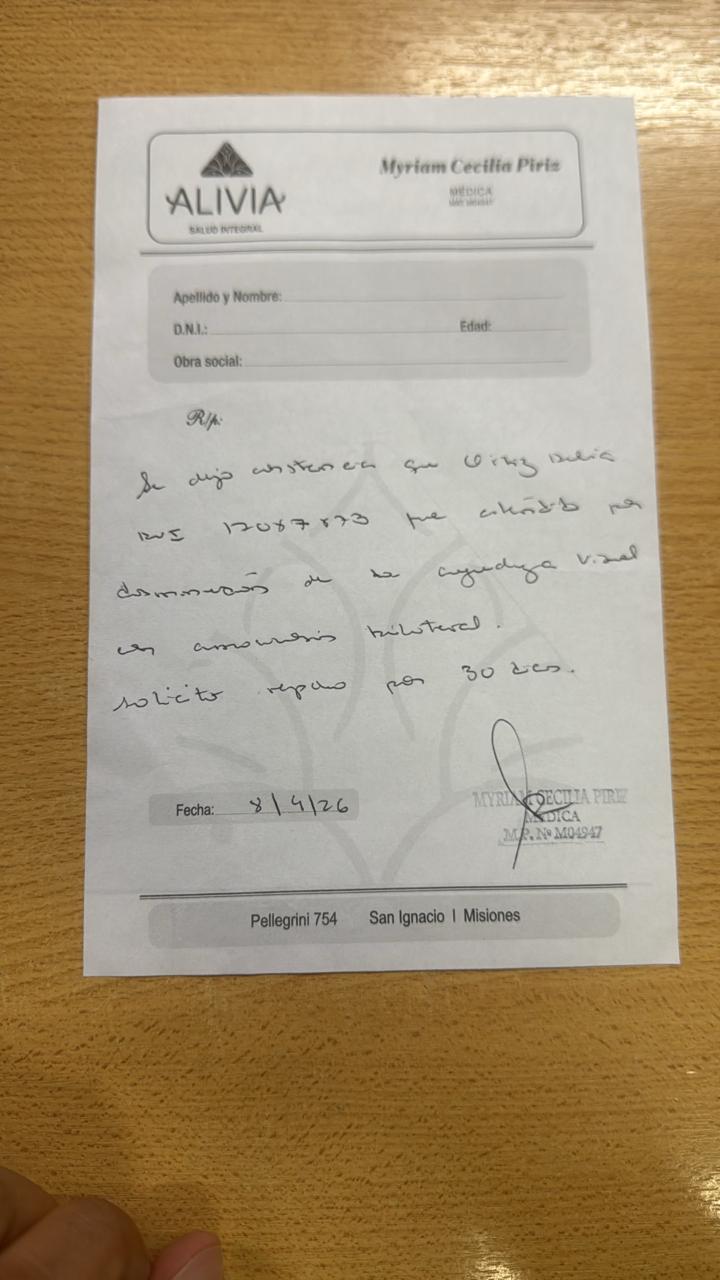 ALIVIA
SALUD INTEGRAL
Myriam Cecilia Piriz
MÉDICA
Apellido y Nombre:
D.N.I.:
Edad:
Obra social:
R/p:
Se deja constancia que
DNI fue atendida por
disminución de la agudeza visual
en bilateral.
solicito reposo por 30 dias.
Fecha: 8/4/26
MYRIAM CECILIA PIRIZ
MEDICA
M.P. Nº M04947
Pellegrini 754 San Ignacio | Misiones